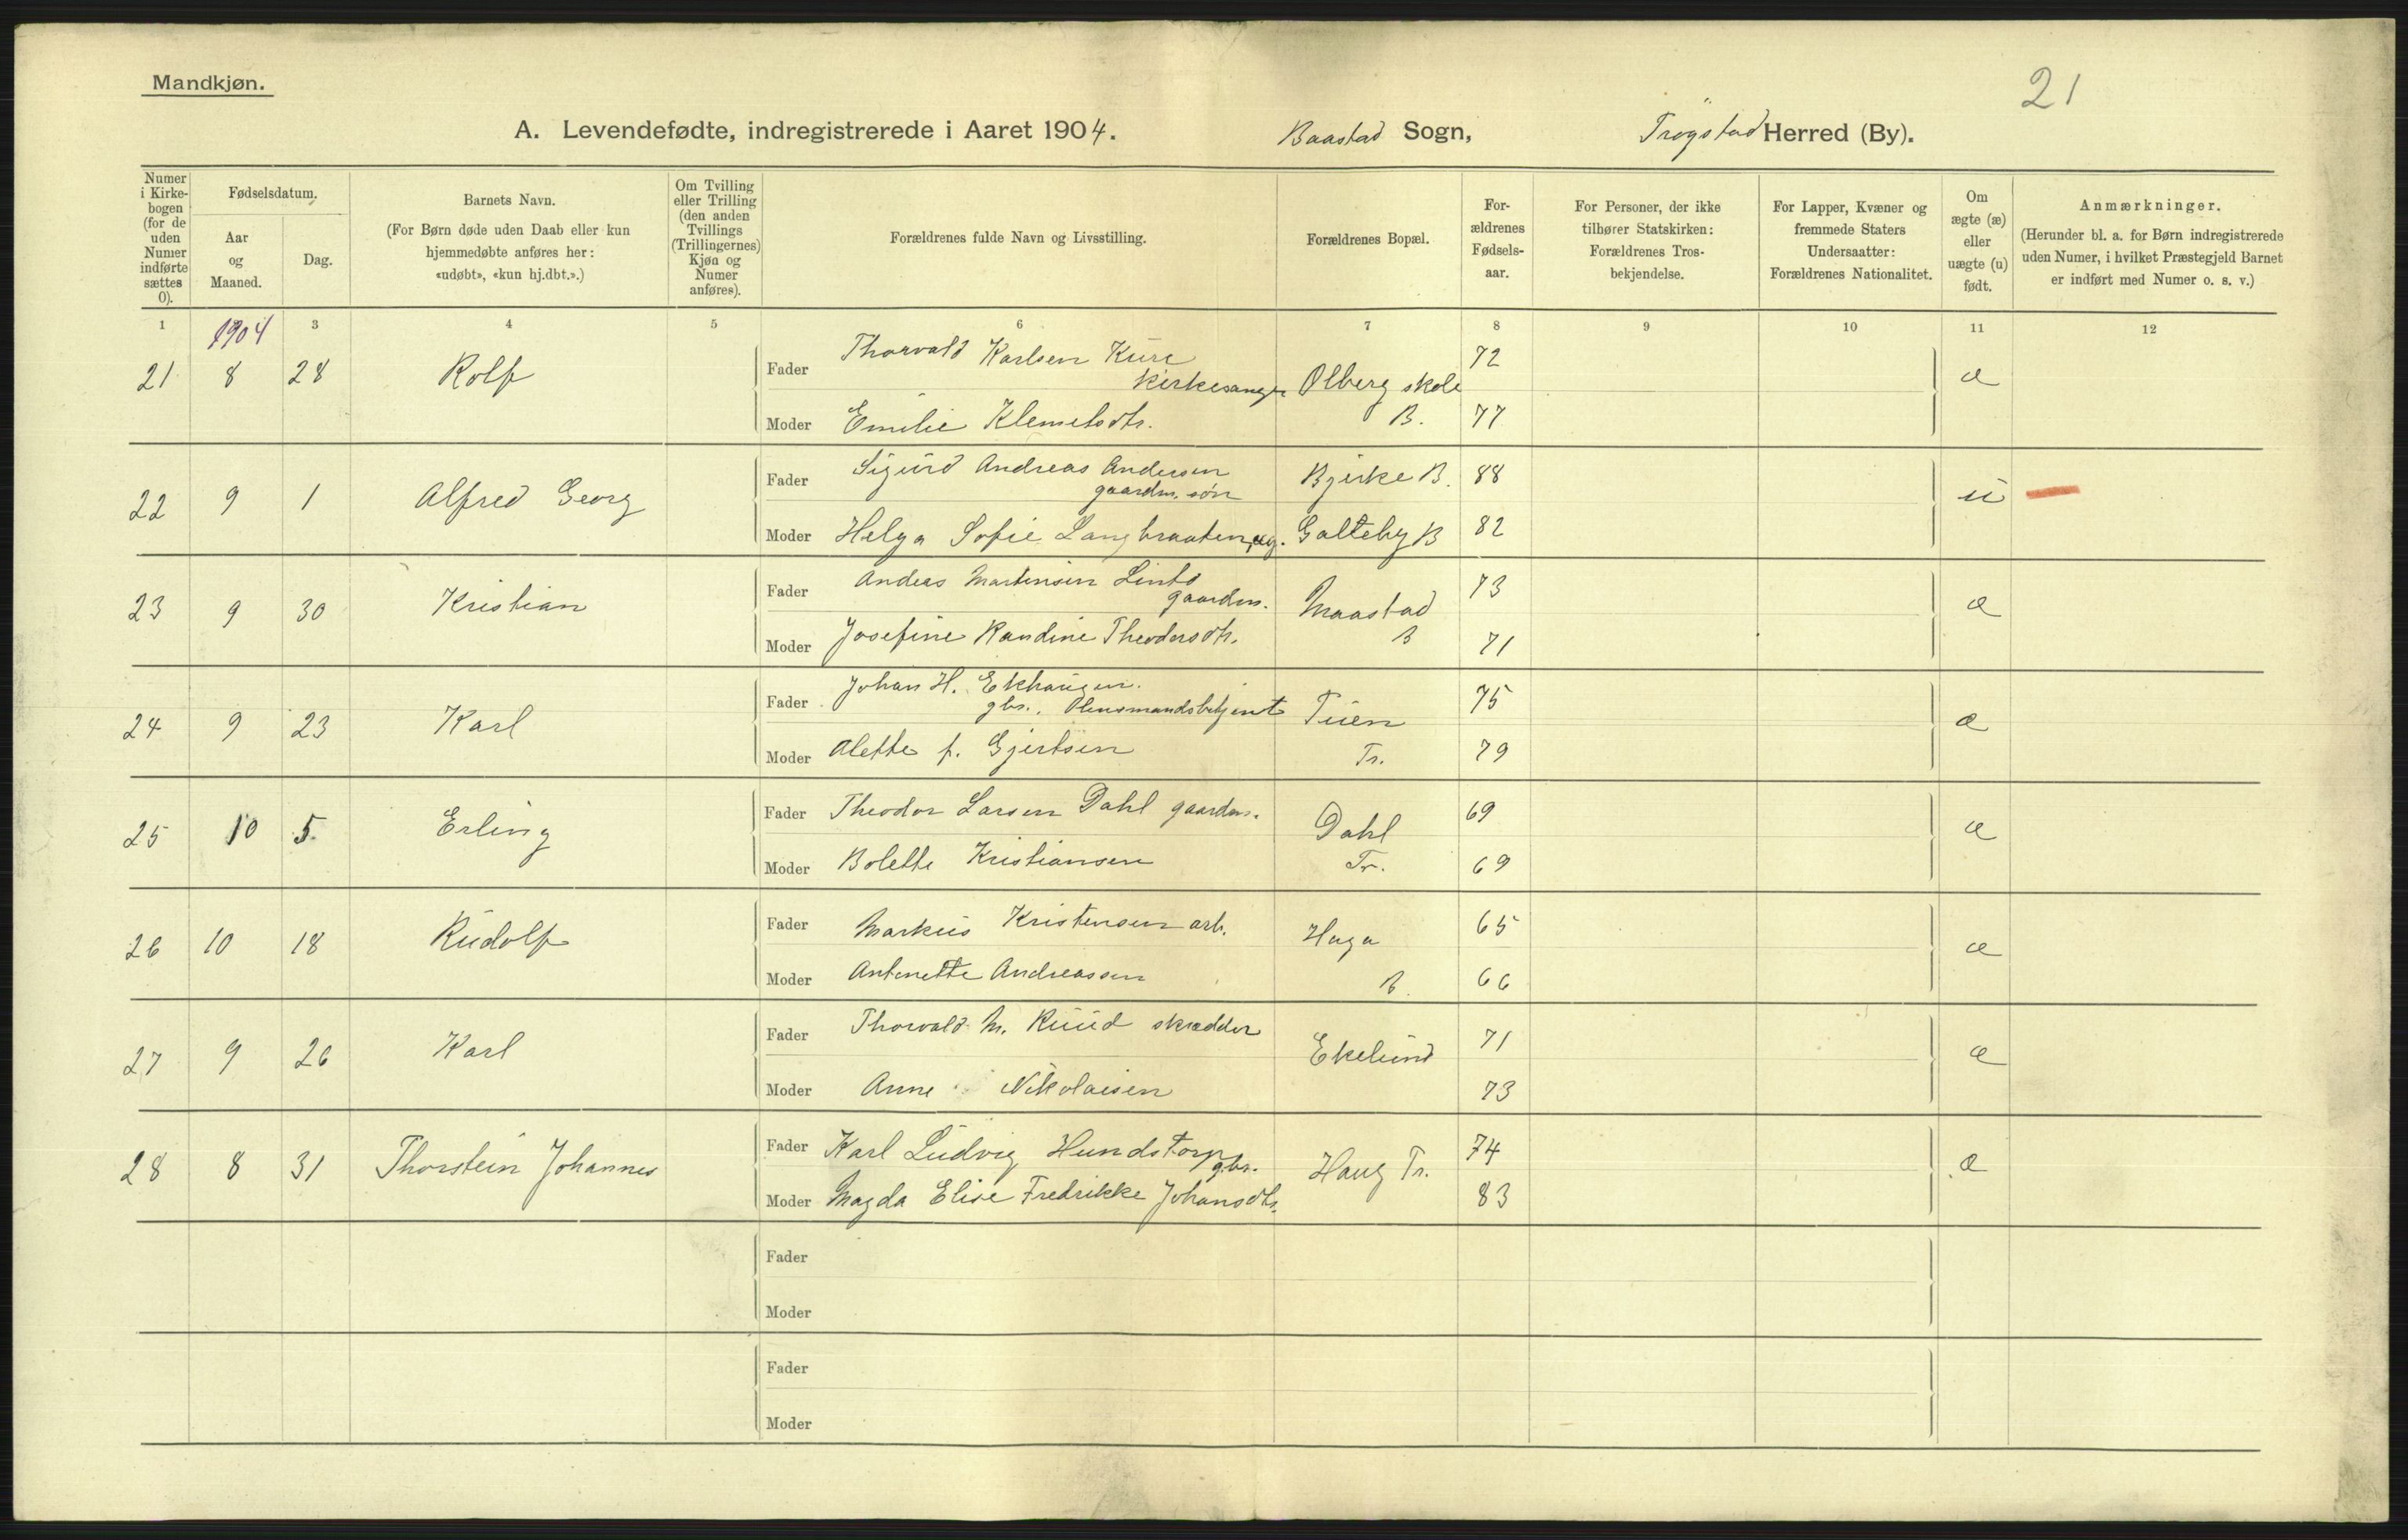 Mandkjøn.
21
A. Levendefødte, indregistrerede i Aaret 1904. Baastad Sogn, Trøgstad Herred (By).
Numer i Kirkebogen (for de uden Numer indførte sættes 0).
Fødselsdatum.
Aar og Maaned.
Dag.
Barnets Navn.
(For Børn døde uden Daab eller kun hjemmedøbte anføres her: «udøbt», «kun hj.dbt.».)
Om Tvilling eller Trilling (den anden Tvillings (Trillingernes) Kjøn og Numer anføres).
Forældrenes fulde Navn og Livsstilling.
Forældrenes Bopæl.
Forældrenes Fødselsaar.
For Personer, der ikke tilhører Statskirken: Forældrenes Trosbekjendelse.
For Lapper, Kvæner og fremmede Staters Undersaatter: Forældrenes Nationalitet.
Om ægte (æ) eller uægte (u) født.
Anmærkninger.
(Herunder bl. a. for Børn indregistrerede uden Numer, i hvilket Præstegjeld Barnet er indført med Numer o. s. v.)
1 3 4 5 6 7 8 9 10 11 12
1904
21 8 28 Rolf Fader Thorvald Karlsen Kure 72
kirkesanger Olberg skole æ
Moder Emilie Klemetsdtr. B. 77
22 9 1 Alfred Georg Fader Sigurd Andreas Andersen Bjerke B. 88
gaardm. søn u
Moder Helga Sofie Langbraaten, ug. Galteby B 82
23 9 30 Kristian Fader Andeas Martinsen Linto 73
gaardm. Maastad æ
Moder Josefine Randine Theodorsdtr. B 71
24 9 23 Karl Fader Johan H. Ekhaugen. 75
gbr. lensmandsbetjent Tuen æ
Moder Alette f. Gjertsen Tr. 79
25 10 5. Erling Fader Theodor Larsen Dahl gaardm. Dahl 69 æ
Moder Bolette Kristiansen Tr. 69
26 10 18 Rudolf Fader Markus Kristensen arb. Haga 65 æ
Moder Antonette Andreassen B. 66
27 9 26 Karl Fader Thorvald M. Ruud skrædder Ekelund 71 æ
Moder Anne Nikolaisen 73
28 8 31 Thorstein Johannes Fader Karl Ludvig Hundstorp gbr. Haug Tr. 74 æ
Moder Magda Elise Fredrikke Johansdtr. 83
Fader
Moder
Fader
Moder